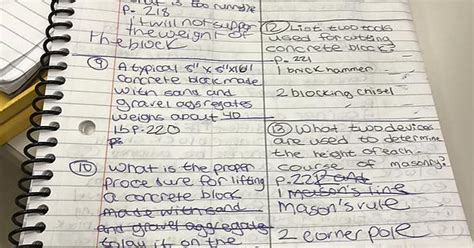 What is too runny?
p. 218
it will not support
the weight of
the block
9 A typical 8" x 8"x16"
concrete block made
with sand and
gravel aggregates
weighs about 40
lb P. 220
10 What is the proper
procedure for lifting
a concrete block
made with sand
and gravel aggregate
on the
12 List two tools
used for cutting
concrete block?
p. 221
1 brick hammer
2 blocking chisel
13 What two devices
are used to determine
the height of each
course of masonry?
p. 222
1 Mason's line
Mason's rule
2 corner pole